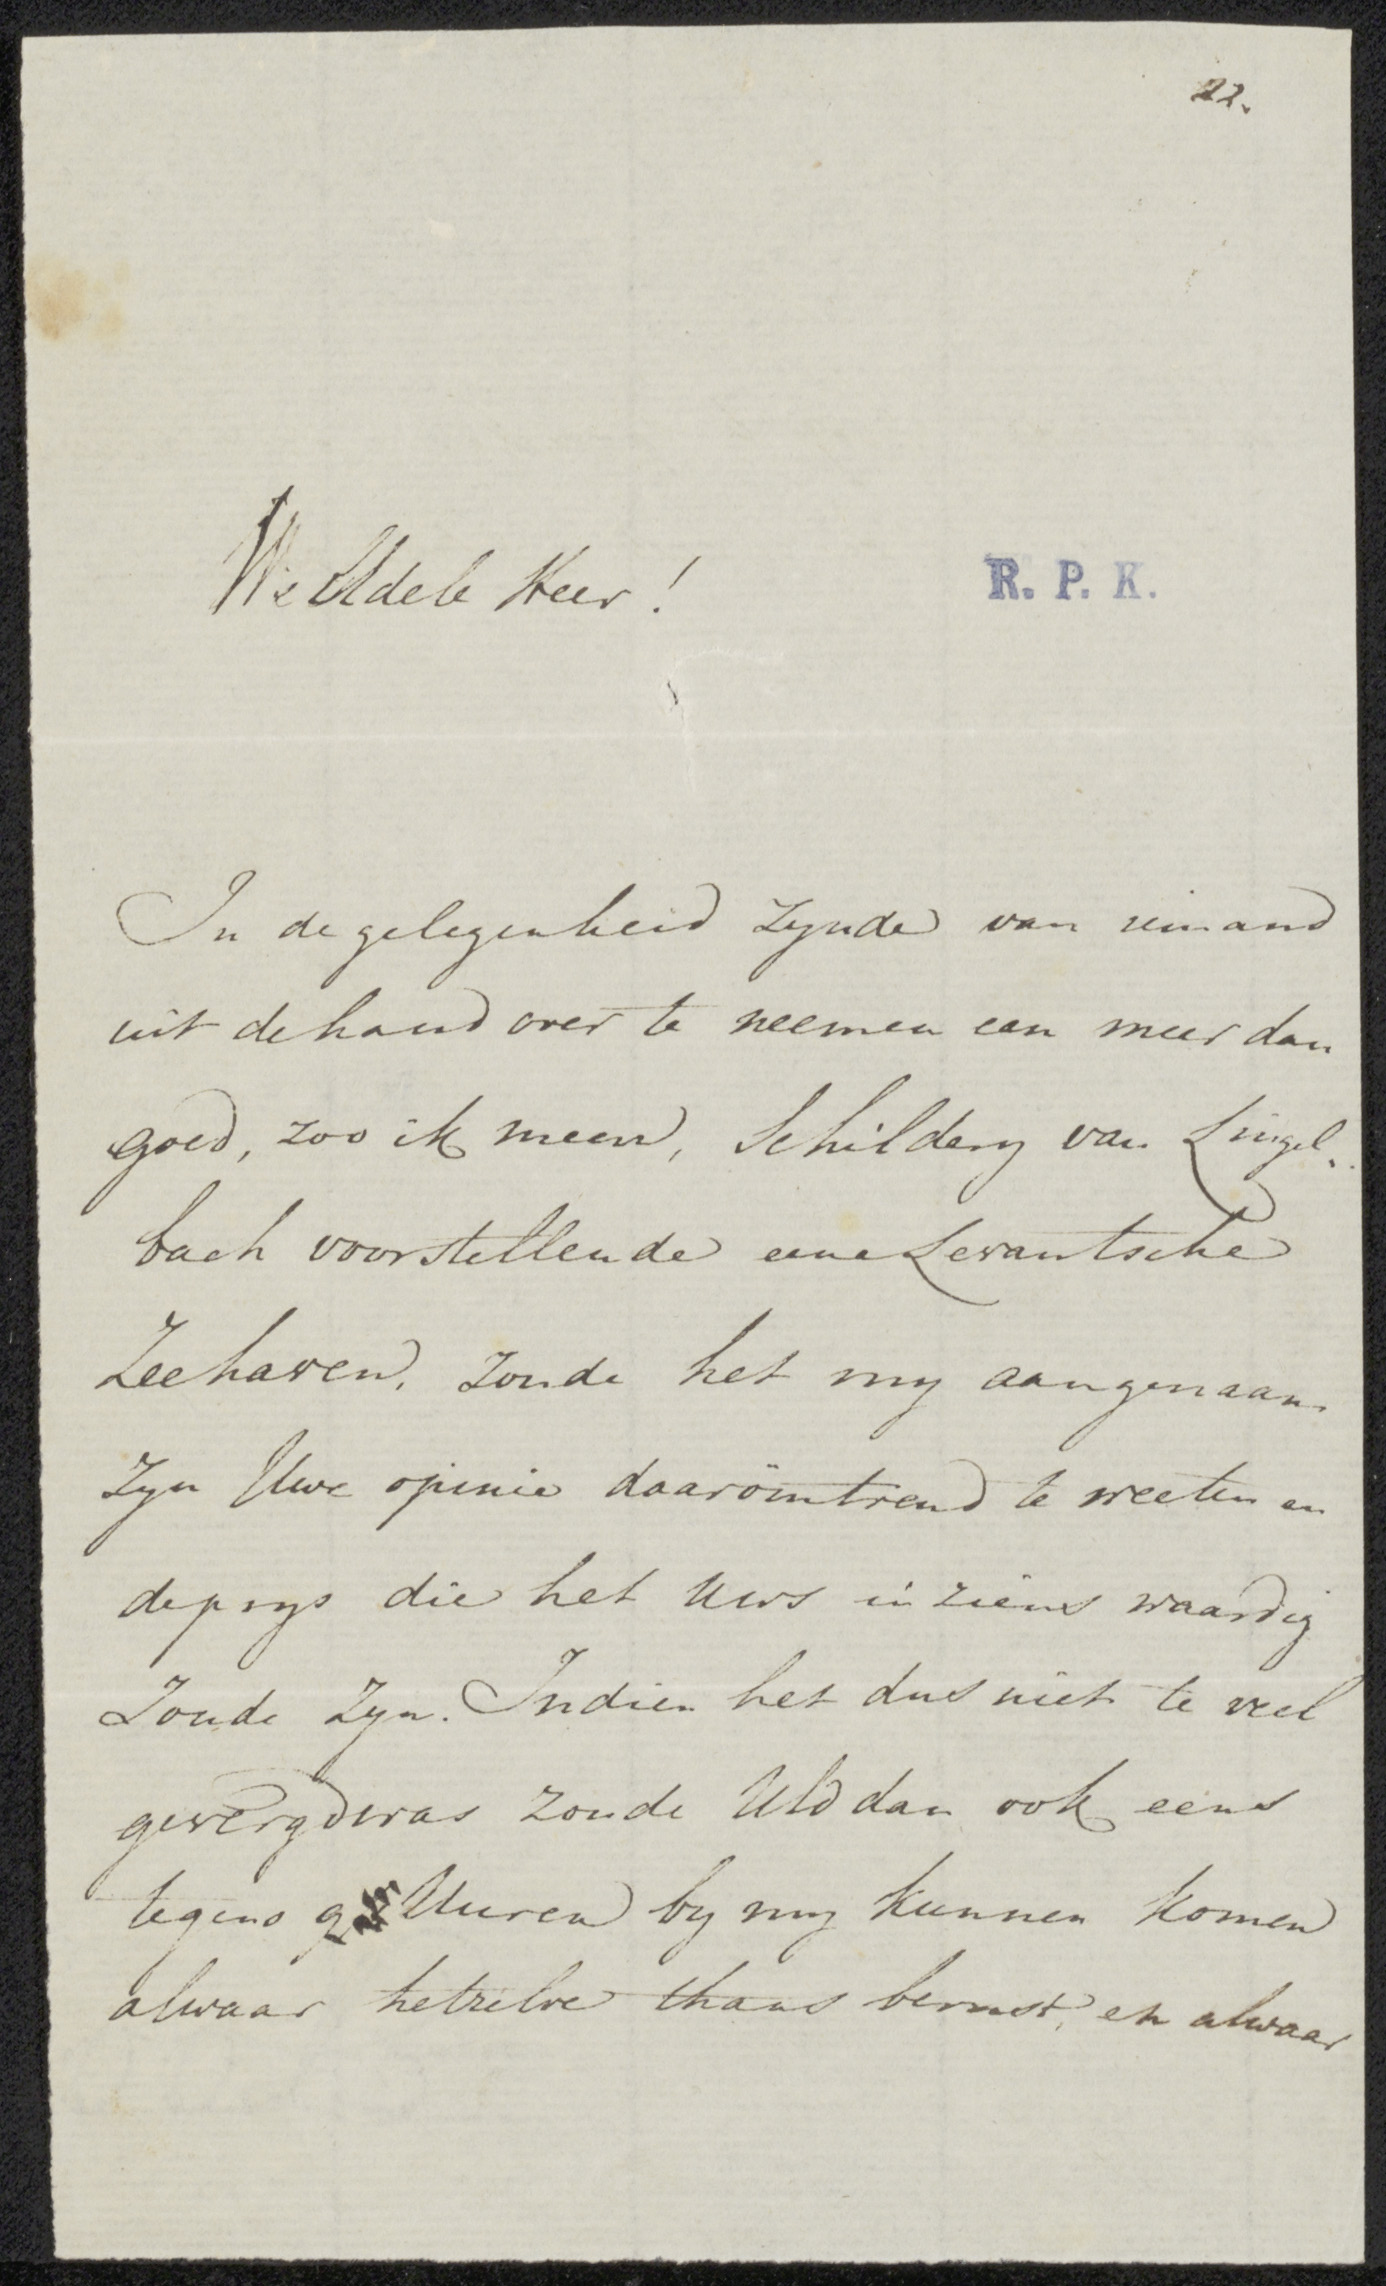 22.
WelEdele Heer!
R. P. K.
In de gelegenheid zynde van iemand
uit de hand over te neemen een meer dan
goed, zoo ik meen, Schildery van Lingel-
bach voorstellende eene Levantsche
Zeehaven, zoude het my aangenaam
zyn Uwe opinie daaromtrend te weeten en
de prys die het Uws inziens waardig
zoude zyn. Indien het dus niet te veel
gevergd was zoude UEd dan ook eens
tegens Uuren by my kunnen komen
alwaar hetzelve thans berust, en alwaar